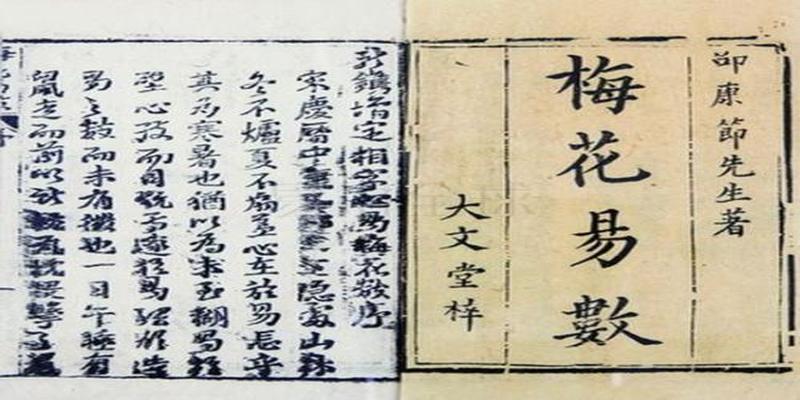 卲康節先生著
梅花易數
大文堂梓
新鐫增定相字心易梅花數序
宋慶曆中隱處山林
冬不爐夏不扇蓋心在於易忘乎
其为寒暑也猶以為未至糊易於
壁心致而目玩焉邃於易理欲造
易之數而未有徵也一日午睡有
鼠走而前以所枕瓦枕投擊之